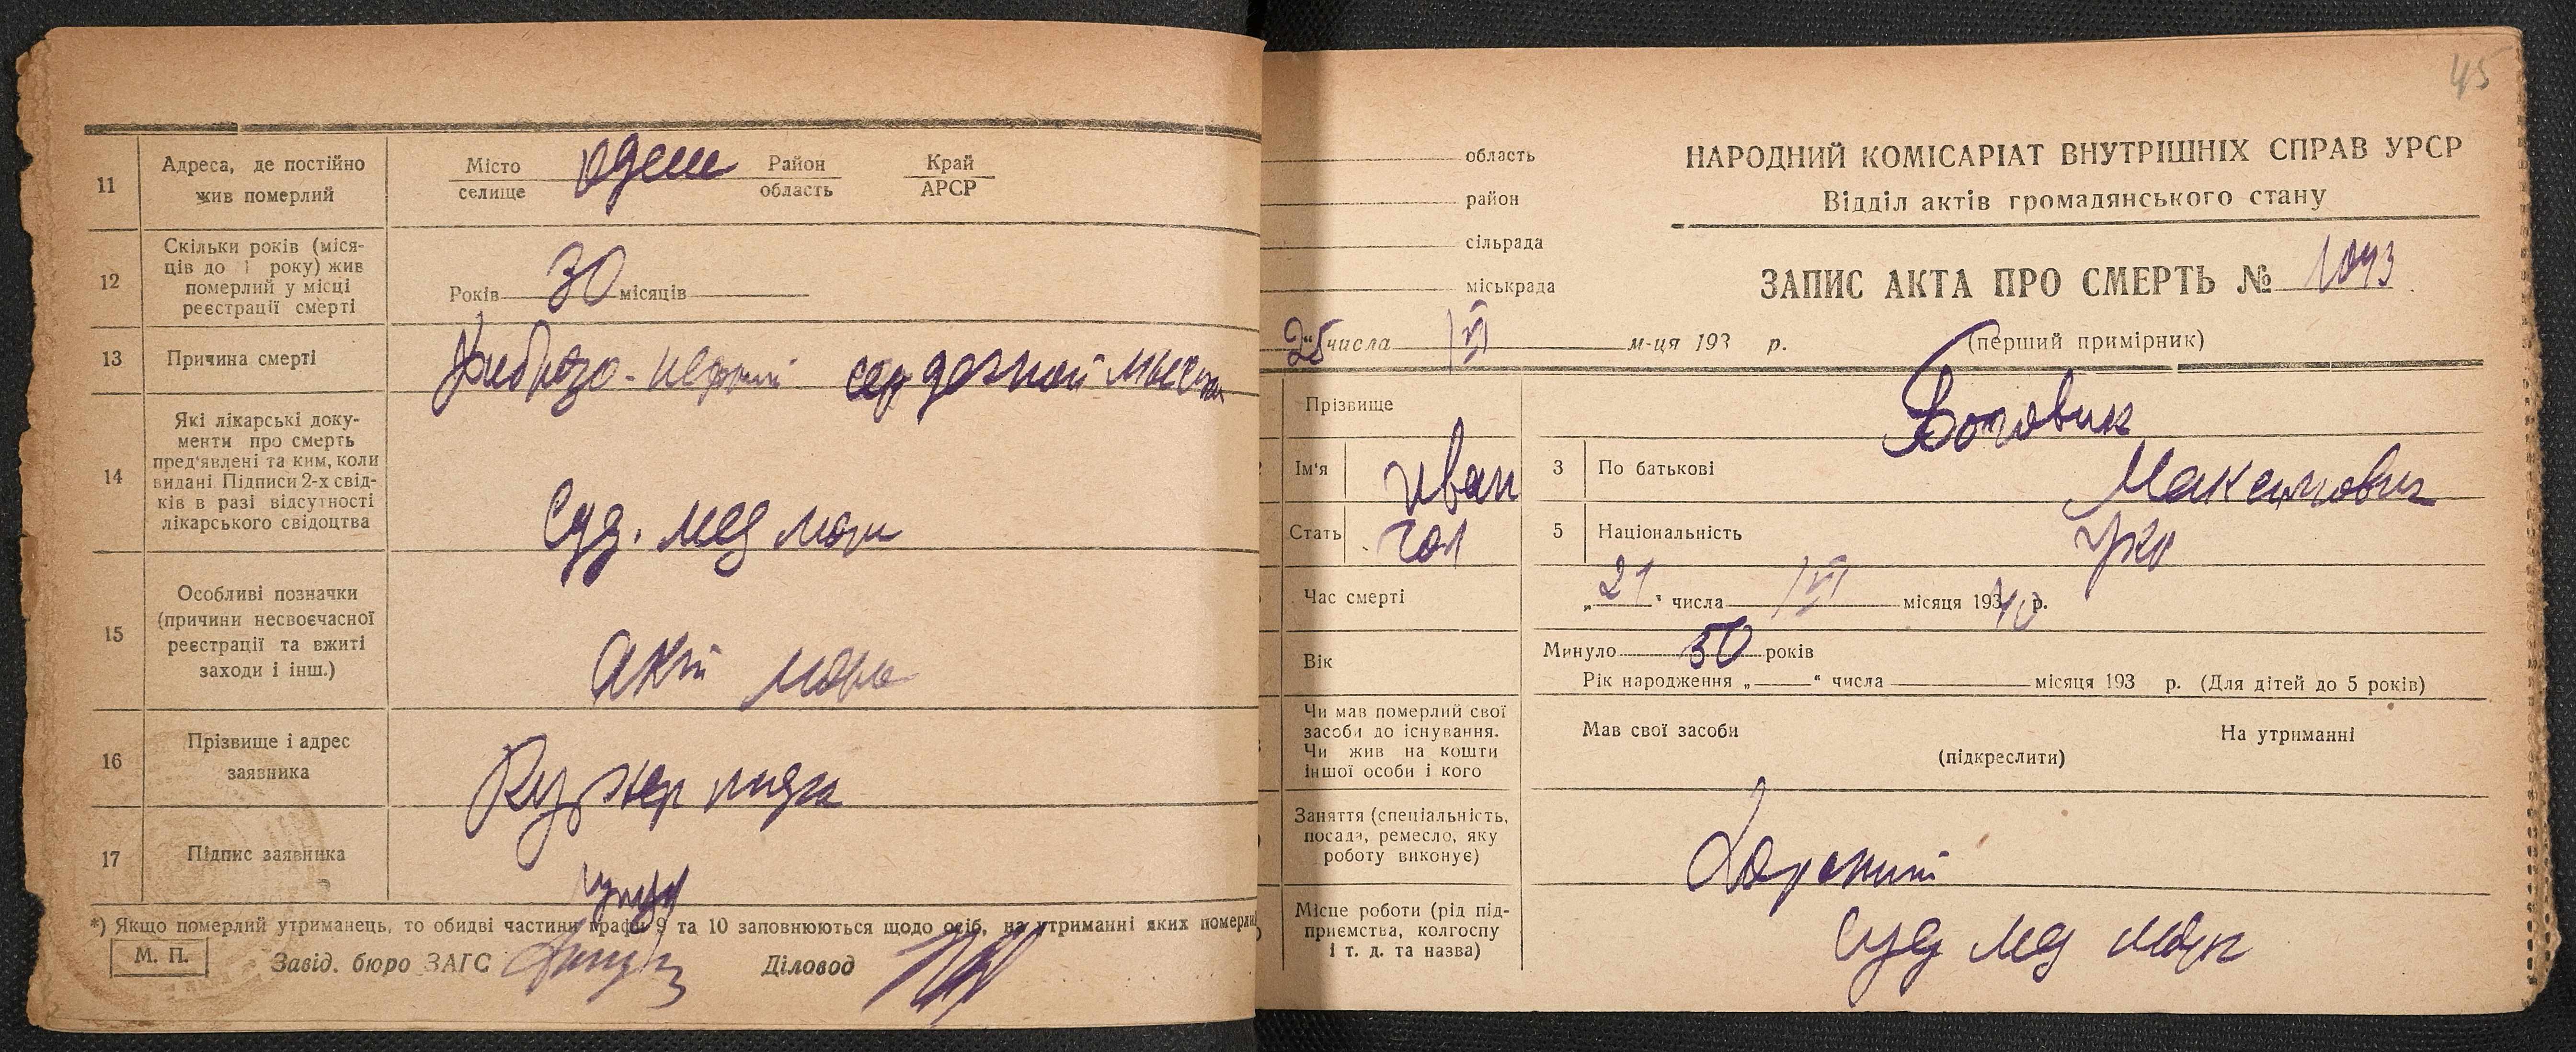 11 Адреса, де постійно жив померлий Місто селище Одеса Район область Край АРСР
12 Скільки років (місяців до 1 року) жив померлий у місці реєстрації смерті Років 30 місяців
13 Причина смерті сердечной мышцы
14 Які лікарські документи про смерть пред'явлені та ким, коли видані. Підписи 2-х свідків в разі відсутності лікарського свідоцтва Суд. мед морг
15 Особливі позначки (причини несвоєчасної реєстрації та вжиті заходи і інш.)
16 Прізвище і адрес заявника
17 Підпис заявника
*) Якщо померлий утриманець, то обидві частини графи 9 та 10 заповнюються щодо осіб, на утриманні яких померлий
М. П. Завід. бюро ЗАГС Діловод
45
область
район
сільрада
міськрада
НАРОДНИЙ КОМІСАРІАТ ВНУТРІШНІХ СПРАВ УРСР
Відділ актів громадянського стану
ЗАПИС АКТА ПРО СМЕРТЬ № 1093
„25“ числа VI м-ця 193 р. (перший примірник)
Прізвище Боговик
Ім'я Иван 3 По батькові Максимович
Стать чол 5 Національність укр
Час смерті „21“ числа VI місяця 19340 р.
Вік Минуло 50 років
Рік народження „ “ числа місяця 193 р. (Для дітей до 5 років)
Чи мав померлий свої засоби до існування. Чи жив на кошти іншої особи і кого Мав свої засоби На утриманні
(підкреслити)
Заняття (спеціальність, посада, ремесло, яку роботу виконує)
Місце роботи (рід підприємства, колгоспу і т. д. та назва) Суд мед морг